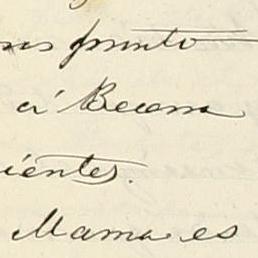 mas pronto
á Becerra
ientes.
Mama es